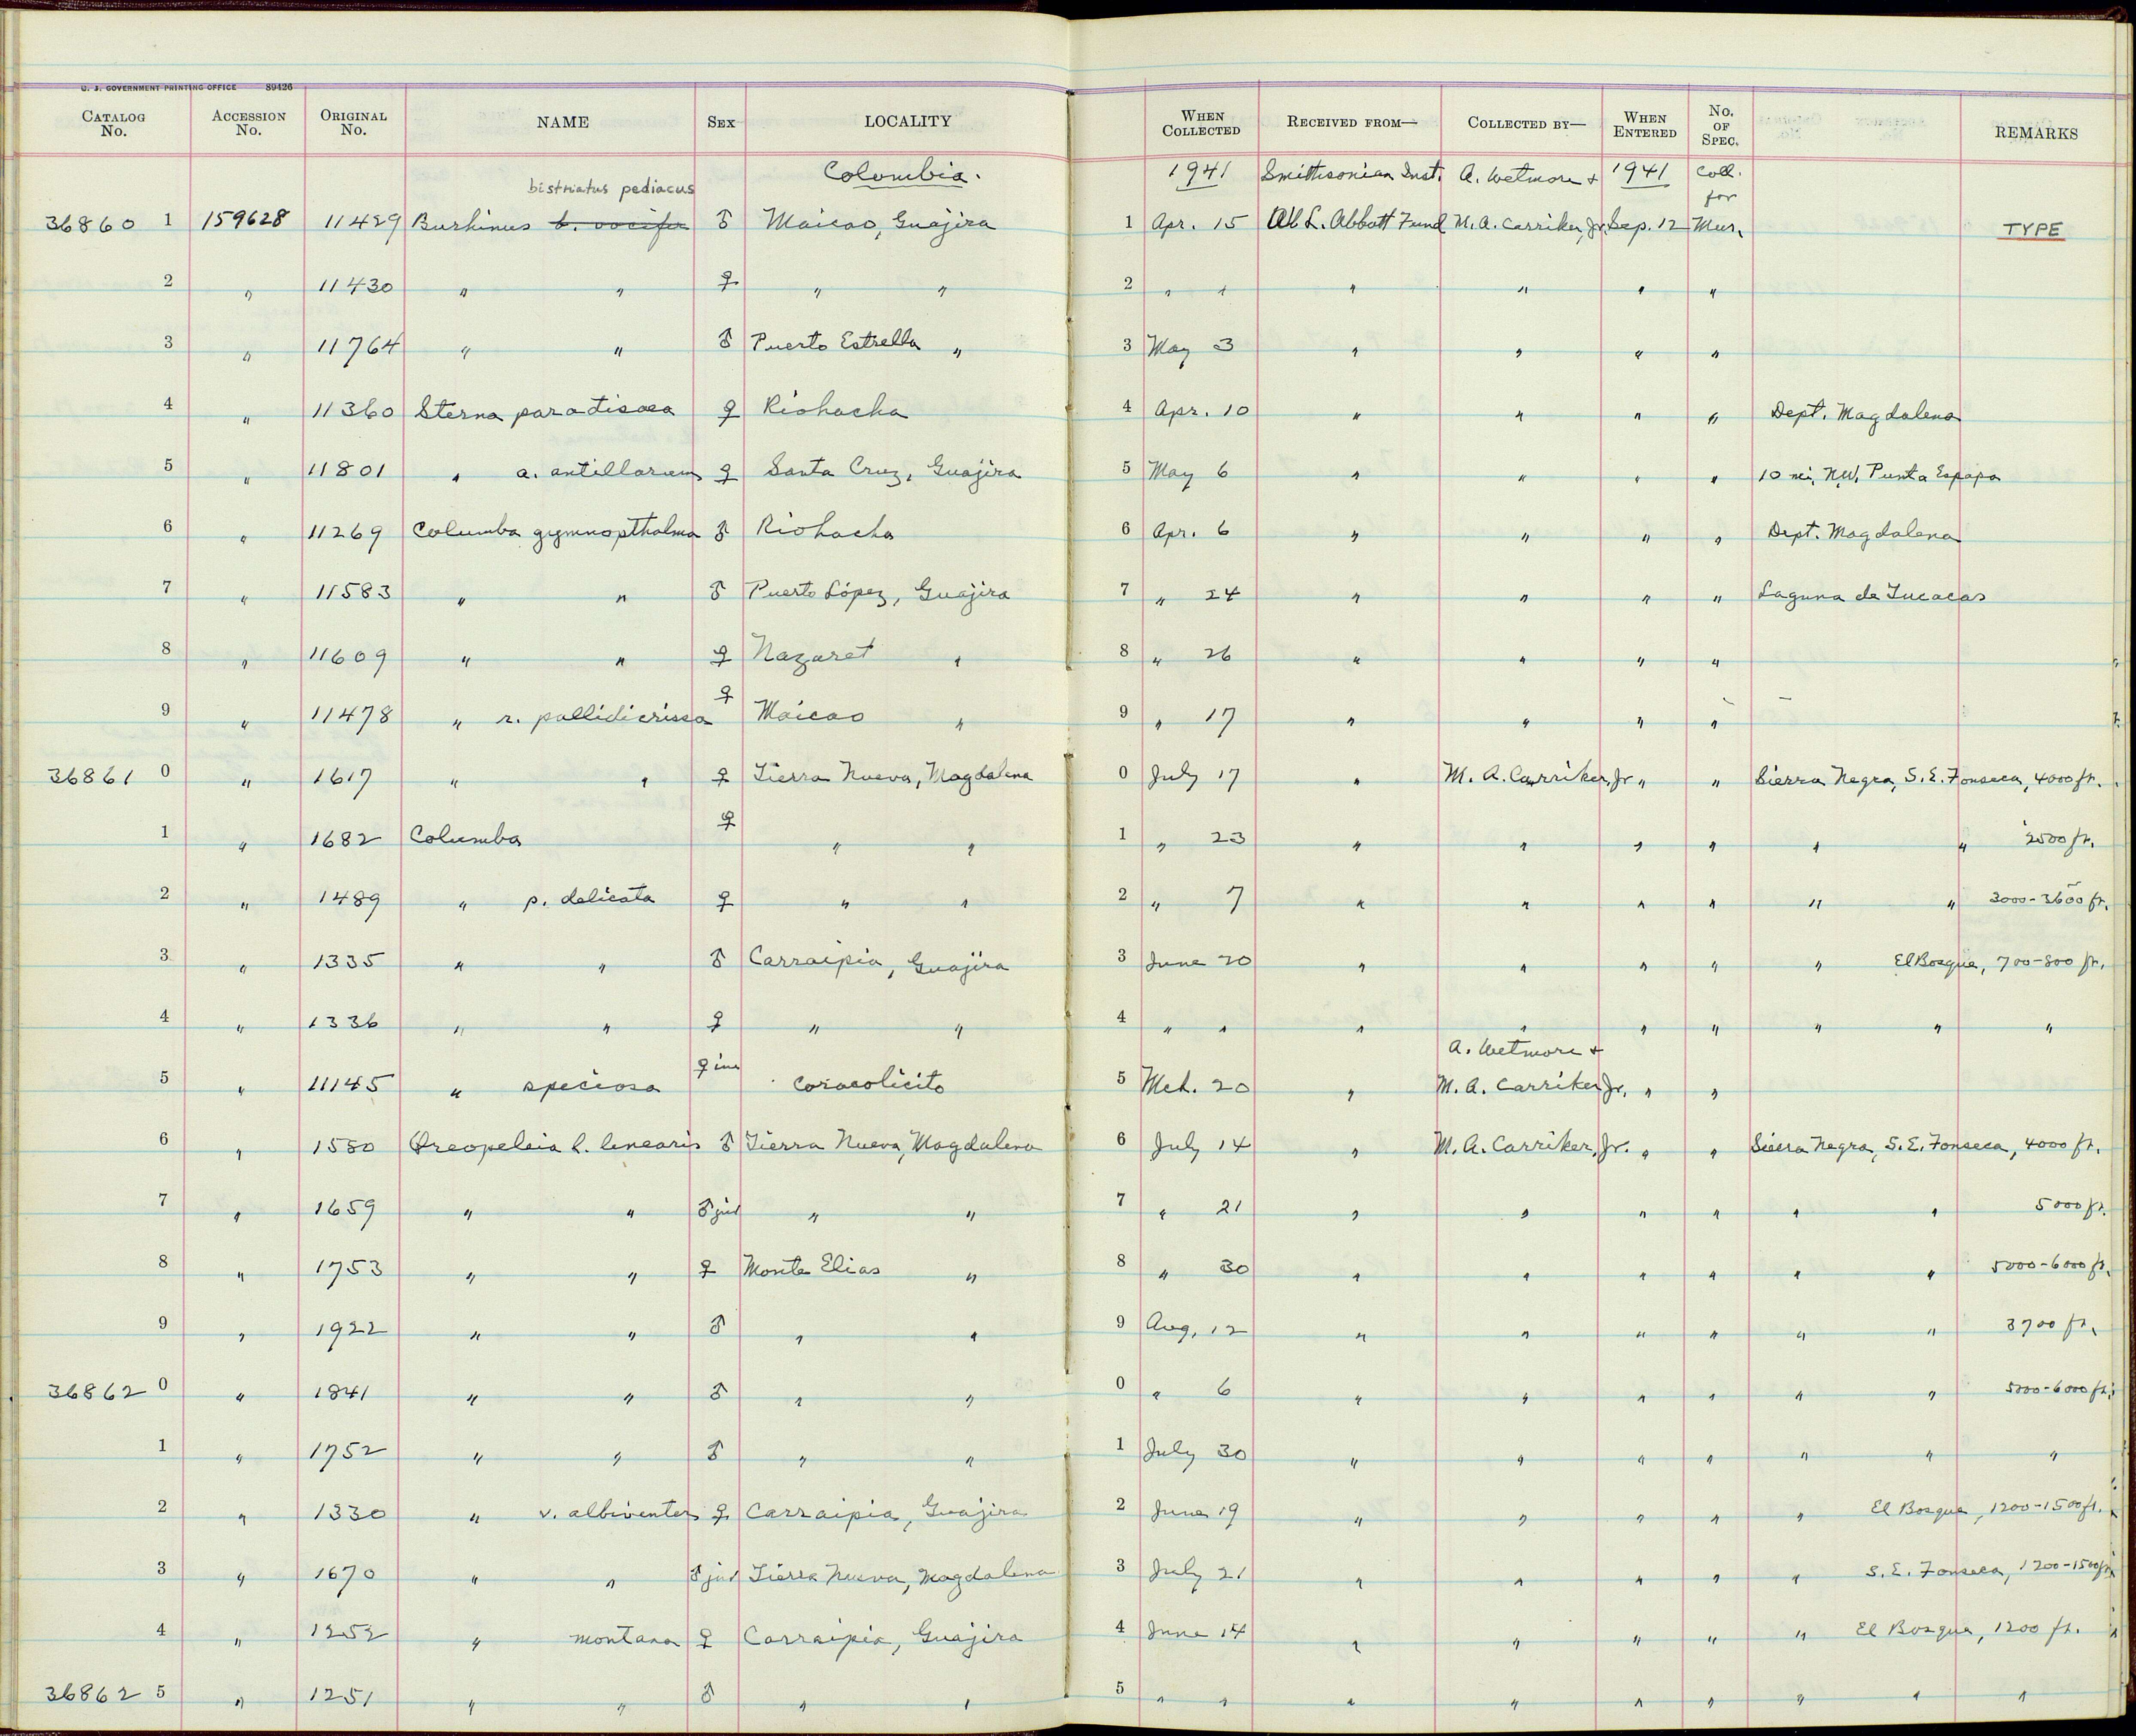 U. S. GOVERNMENT PRINTING OFFICE 89426
CATALOG No. ACCESSION No. ORIGINAL No. NAME SEX LOCALITY WHEN COLLECTED RECEIVED FROM— COLLECTED BY— WHEN ENTERED No. OF SPEC. REMARKS
Colombia. 1941 Smithsonian Inst. A. Wetmore + 1941 Coll. for
bistriatus pediacus
36860 1 159628 11429 Burhinus b. vocifer ♂ Maicao, Guajira 1 Apr. 15 W. L. Abbott Fund M. A. Carriker, Jr. Sep. 12 Mus. TYPE
2 " 11430 " " ♀ " " 2 " " " " " "
3 " 11764 " " ♂ Puerto Estrella " 3 May 3 " " " "
4 " 11360 Sterna paradisaea ♀ Riohacha 4 Apr. 10 " " " " Dept. Magdalena
5 " 11801 " a. antillarum ♀ Santa Cruz, Guajira 5 May 6 " " " " 10 mi. N.W. Punta Espapa
6 " 11269 Columba gymnopthalma ♂ Riohacha 6 Apr. 6 " " " " Dept. Magdalena
7 " 11583 " " ♂ Puerto López, Guajira 7 " 24 " " " " Laguna de Tucacas
8 " 11609 " " ♀ Nazaret " 8 " 26 " " " "
9 " 11478 " r. pallidicrissa ♀ Maicao " 9 " 17 " " " "
36861 0 " 1617 " " ♀ Tierra Nueva, Magdalena 0 July 17 " M. A. Carriker, Jr. " " Sierra Negra, S.E. Fonseca, 4000 ft.
1 " 1682 Columba ♀ " " 1 " 23 " " " " " " 2500 ft.
2 " 1489 " p. delicata ♀ " " 2 " 7 " " " " " " 3000-3600 ft.
3 " 1335 " " ♂ Carraipia, Guajira 3 June 20 " " " " " El Bosque, 700-800 ft.
4 " 1336 " " ♀ " " 4 " " " " " " " " "
A. Wetmore +
5 " 11145 " speciosa ♀ im Caracolicito 5 Mch. 20 " M. A. Carriker Jr. " "
6 " 1580 Oreopeleia l. linearis ♂ Tierra Nueva, Magdalena 6 July 14 " M. A. Carriker, Jr. " " Sierra Negra, S.E. Fonseca, 4000 ft.
7 " 1659 " " ♂ juv " " 7 " 21 " " " " " " 5000 ft.
8 " 1753 " " ♀ Monte Elias " 8 " 30 " " " " " " 5000-6000 ft.
9 " 1922 " " ♂ " " 9 Aug. 12 " " " " " " 3700 ft.
36862 0 " 1841 " " ♂ " " 0 " 6 " " " " " " 5000-6000 ft.
1 " 1752 " " ♂ " " 1 July 30 " " " " " " "
2 " 1330 " v. albiventer ♀ Carraipia, Guajira 2 June 19 " " " " " El Bosque, 1200-1500 ft.
3 " 1670 " " ♂ juv Tierra Nueva, Magdalena 3 July 21 " " " " " S.E. Fonseca, 1200-1500 ft.
4 " 1252 " montana ♀ Carraipia, Guajira 4 June 14 " " " " " El Bosque, 1200 ft.
36862 5 " 1251 " " ♂ " " 5 " " " " " " " " "